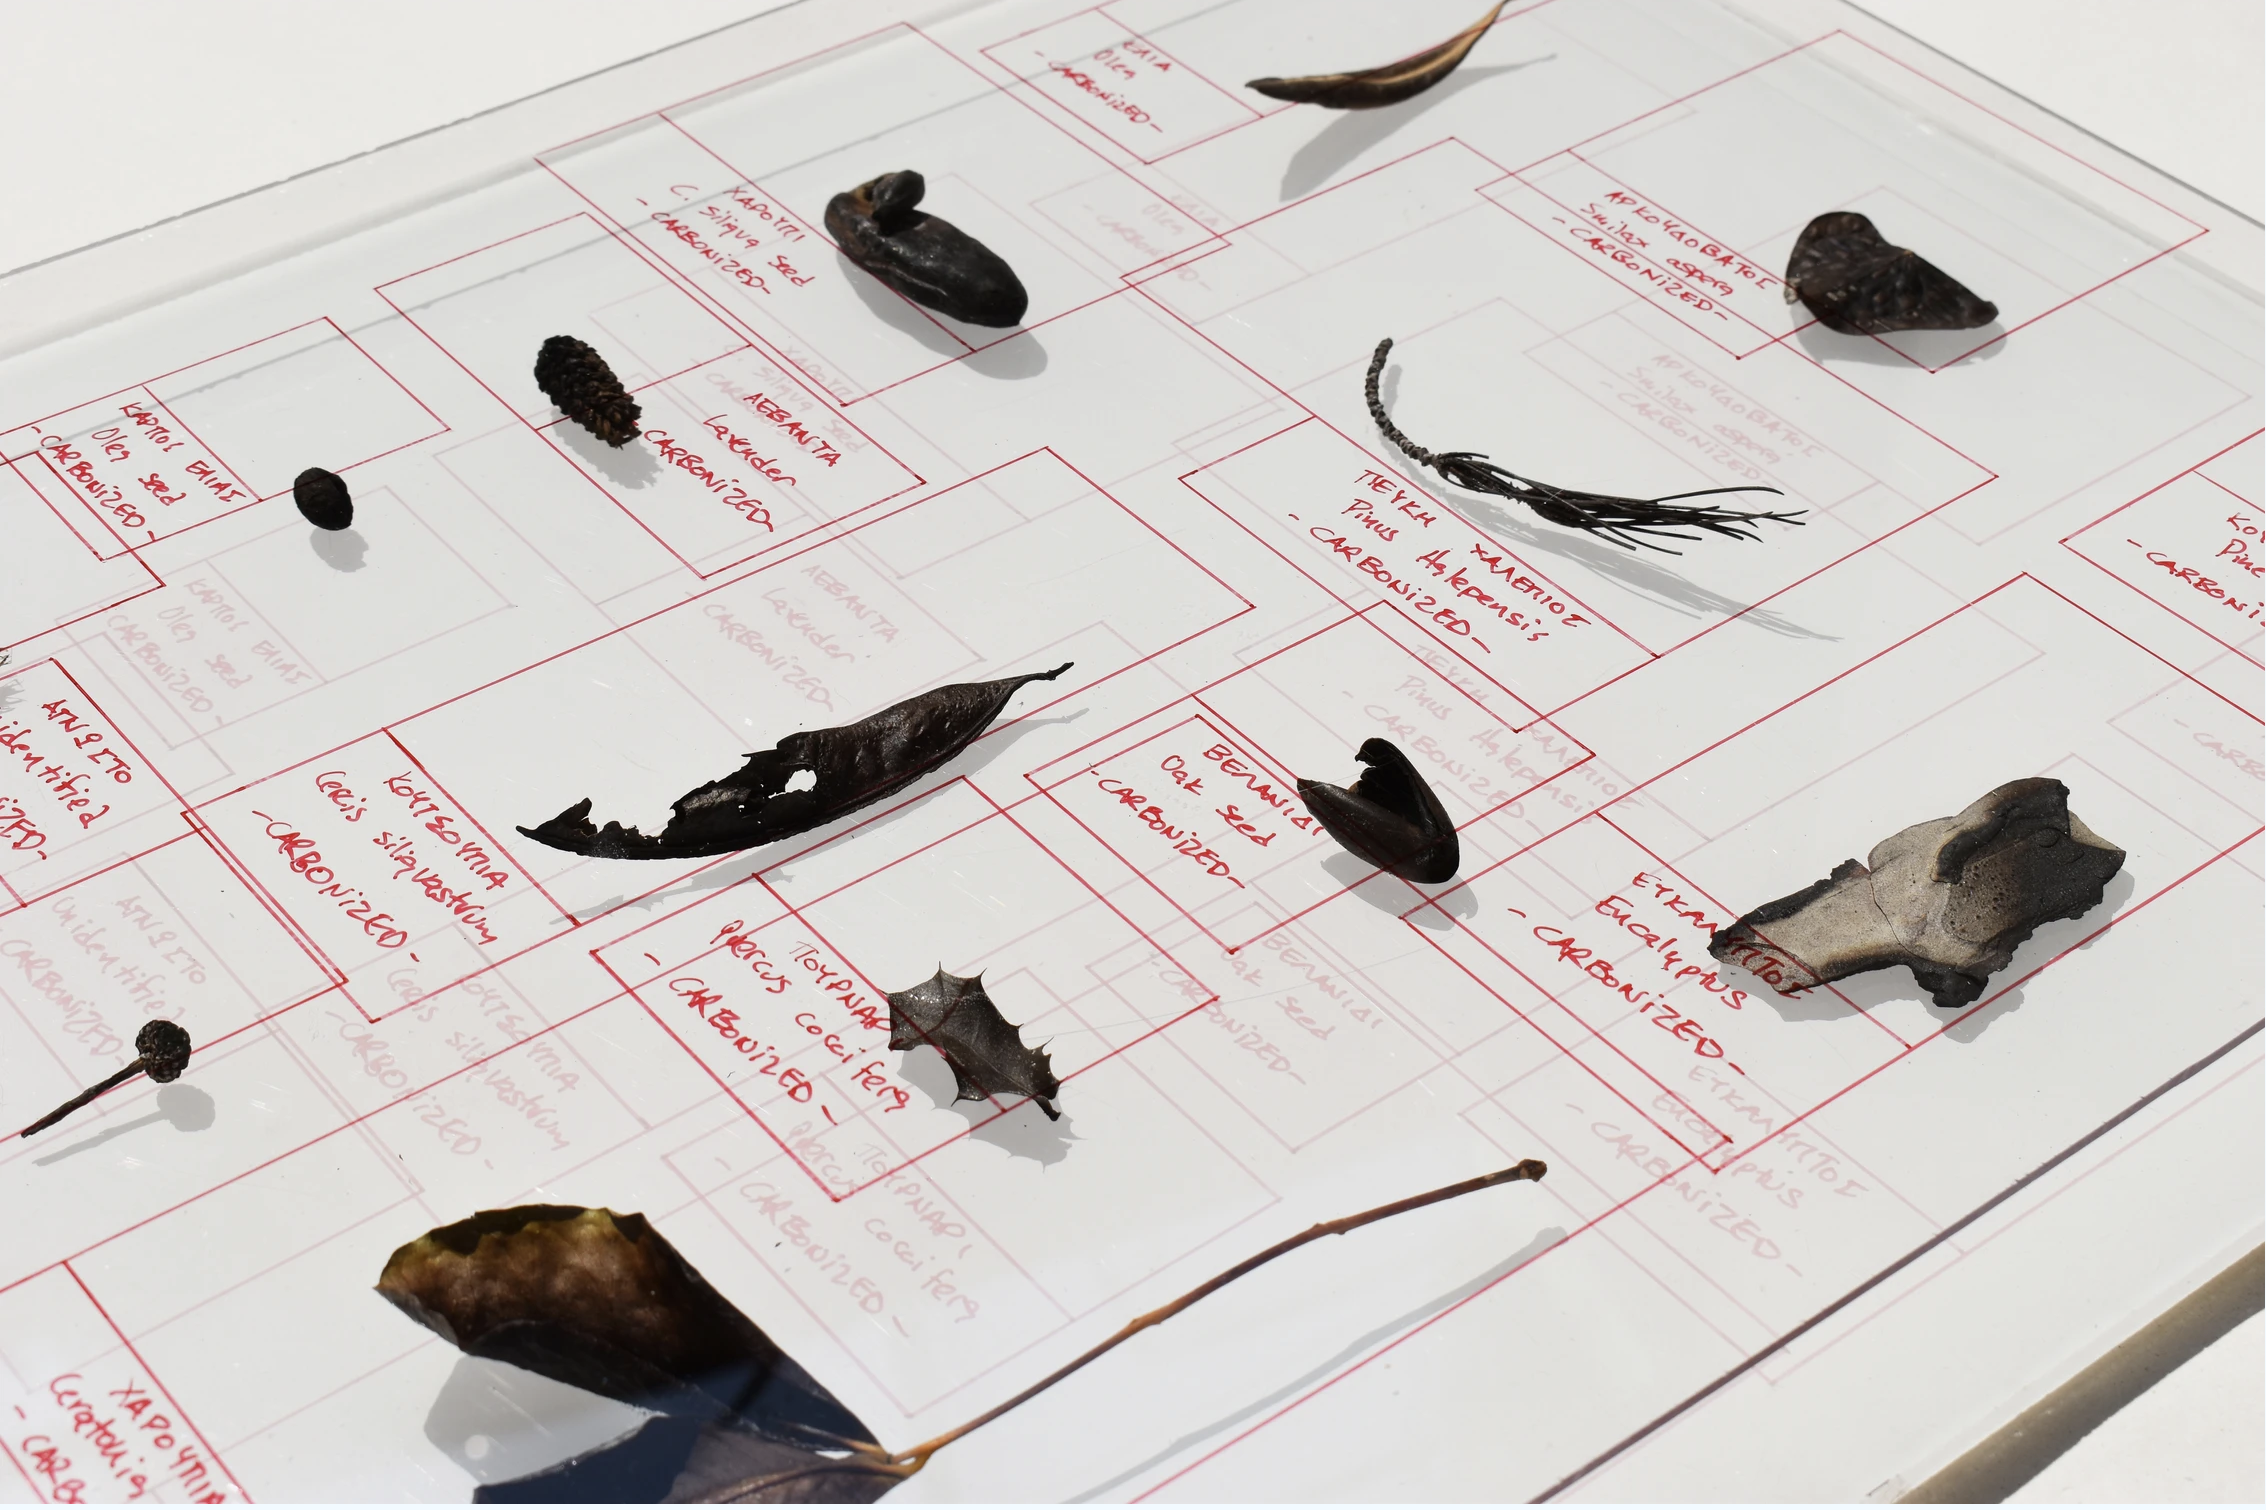 ΕΛΙΑ
Olea
- CARBONIZED -
ΧΑΡΟΥΠΙ
C. siliqua seed
- CARBONIZED-
ΑΡΚΟΥΔΟΒΑΤΟΣ
Smilax aspera
- CARBONIZED-
ΛΕΒΑΝΤΑ
Lavender
CARBONIZED
ΚΑΡΠΟΣ ΕΛΙΑΣ
Olea seed
- CARBONIZED-
ΠΕΥΚΗ ΧΑΛΕΠΙΟΣ
Pinus Halepensis
- CARBONIZED-
ΚΟΥ
Pine
- CARBONI
ΑΓΝΩΣΤΟ
identified
IZED-
ΚΟΥΤΣΟΥΠΙΑ
Ceris siliquastrum
-CARBONIZED-
ΒΕΛΑΝΙΔΙ
Oak seed
-CARBONIZED-
ΕΥΚΑΛΥΠΤΟΣ
Eucalyptus
- CARBONIZED-
ΠΟΥΡΝΑΡΙ
Quercus coccifera
- CARBONIZED -
ΧΑΡΟΥΠΙΑ
Ceratonia
- CARBO